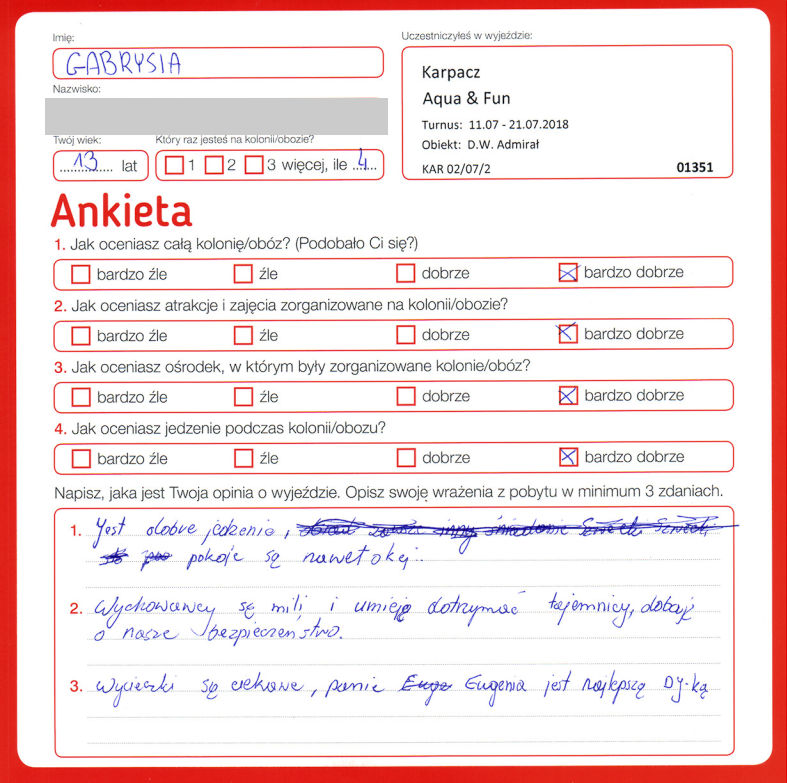 Imię:
GABRYSIA
Nazwisko:
Twój wiek:
13 lat
Który raz jesteś na kolonii/obozie?
1 2 3 więcej, ile 4
Uczestniczyłeś w wyjeździe:
Karpacz
Aqua & Fun
Turnus: 11.07 - 21.07.2018
Obiekt: D.W. Admirał
KAR 02/07/2 01351
Ankieta
1. Jak oceniasz całą kolonię/obóz? (Podobało Ci się?)
bardzo źle źle dobrze bardzo dobrze
2. Jak oceniasz atrakcje i zajęcia zorganizowane na kolonii/obozie?
bardzo źle źle dobrze bardzo dobrze
3. Jak oceniasz ośrodek, w którym były zorganizowane kolonie/obóz?
bardzo źle źle dobrze bardzo dobrze
4. Jak oceniasz jedzenie podczas kolonii/obozu?
bardzo źle źle dobrze bardzo dobrze
Napisz, jaka jest Twoja opinia o wyjeździe. Opisz swoję wrażenia z pobytu w minimum 3 zdaniach.
1. Jest dobre jedzenie,
pokoje są nawet okej..
2. Wychowawcy są mili i umieją dotrzymać tajemnicy, dobają
o nasze bezpieczeństwo.
3. Wycieczki są ciekawe, panie Eugenia jest najlepszą Dy-ką